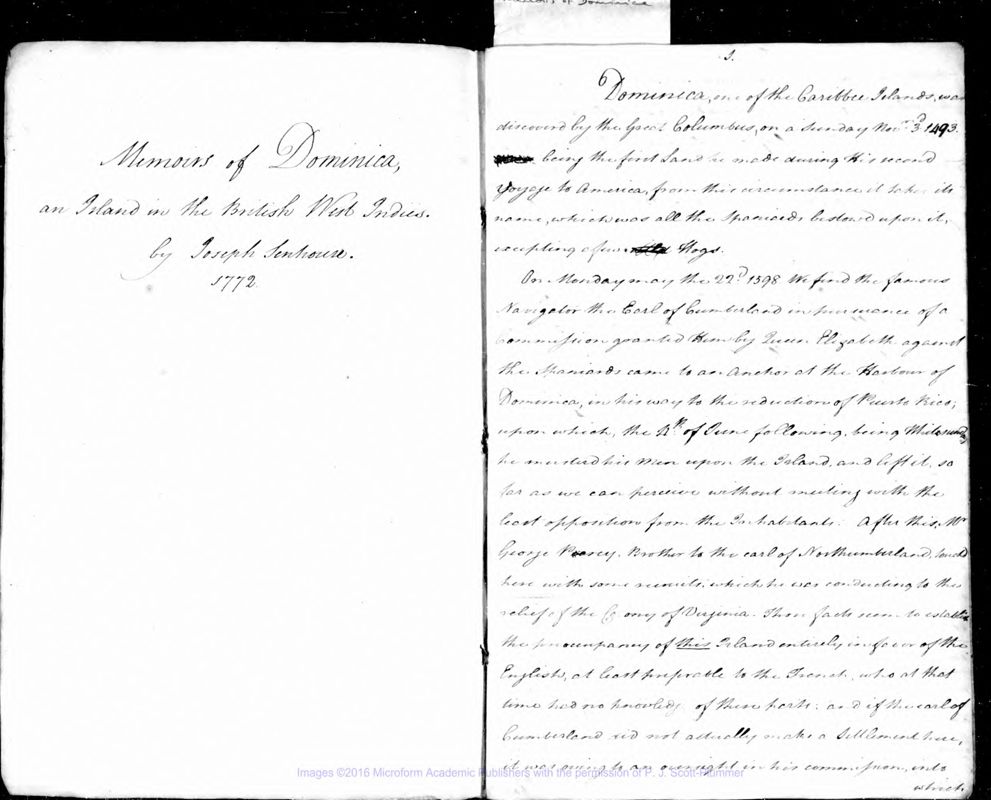 Memoirs of Dominica
Memoirs of Dominica,
an Island in the British West Indies.
by Joseph Senhouse.
1772
1.
Dominica, one of the Caribbee Islands, was
discoverd by the Great Columbus, on a Sunday Novr. 3d 1493.
being the first Land he made during His second
Voyage to America, from this circumstance it takes its
name, which was all the Spaniards bestowd upon it,
excepting a few Hogs.
On Monday may the 22d 1598 We find the famous
Navigator the Earl of Cumberland in pursuance of a
Commission granted Him by Queen Elizabeth against
the Spaniards came to an Anchor at the Harbour of
Dominica, in his way to the reduction of Puerto Rico;
upon which, the of June following, being Whitsunday
he musterd his Men upon the Island, and left it, so
far as we can perceive without meeting with the
least opposition from the Inhabitants. After this, Mr
George Peercy, Brother to the earl of Northumberland, touchd
here with some recruits, which he was conducting to the
relief of the Colony of Virginia. These facts seem to establish
the preoccupancy of this Island entirely in favor of the
English, at least preferable to the French, who at that
time had no knowledg of these parts: and if the earl of
Cumberland did not actually make a Settlement here,
it was owing to an oversight in his commission, into
which
Images ©2016 Microform Academic Publishers with the permission of P. J. Scott-Plummer